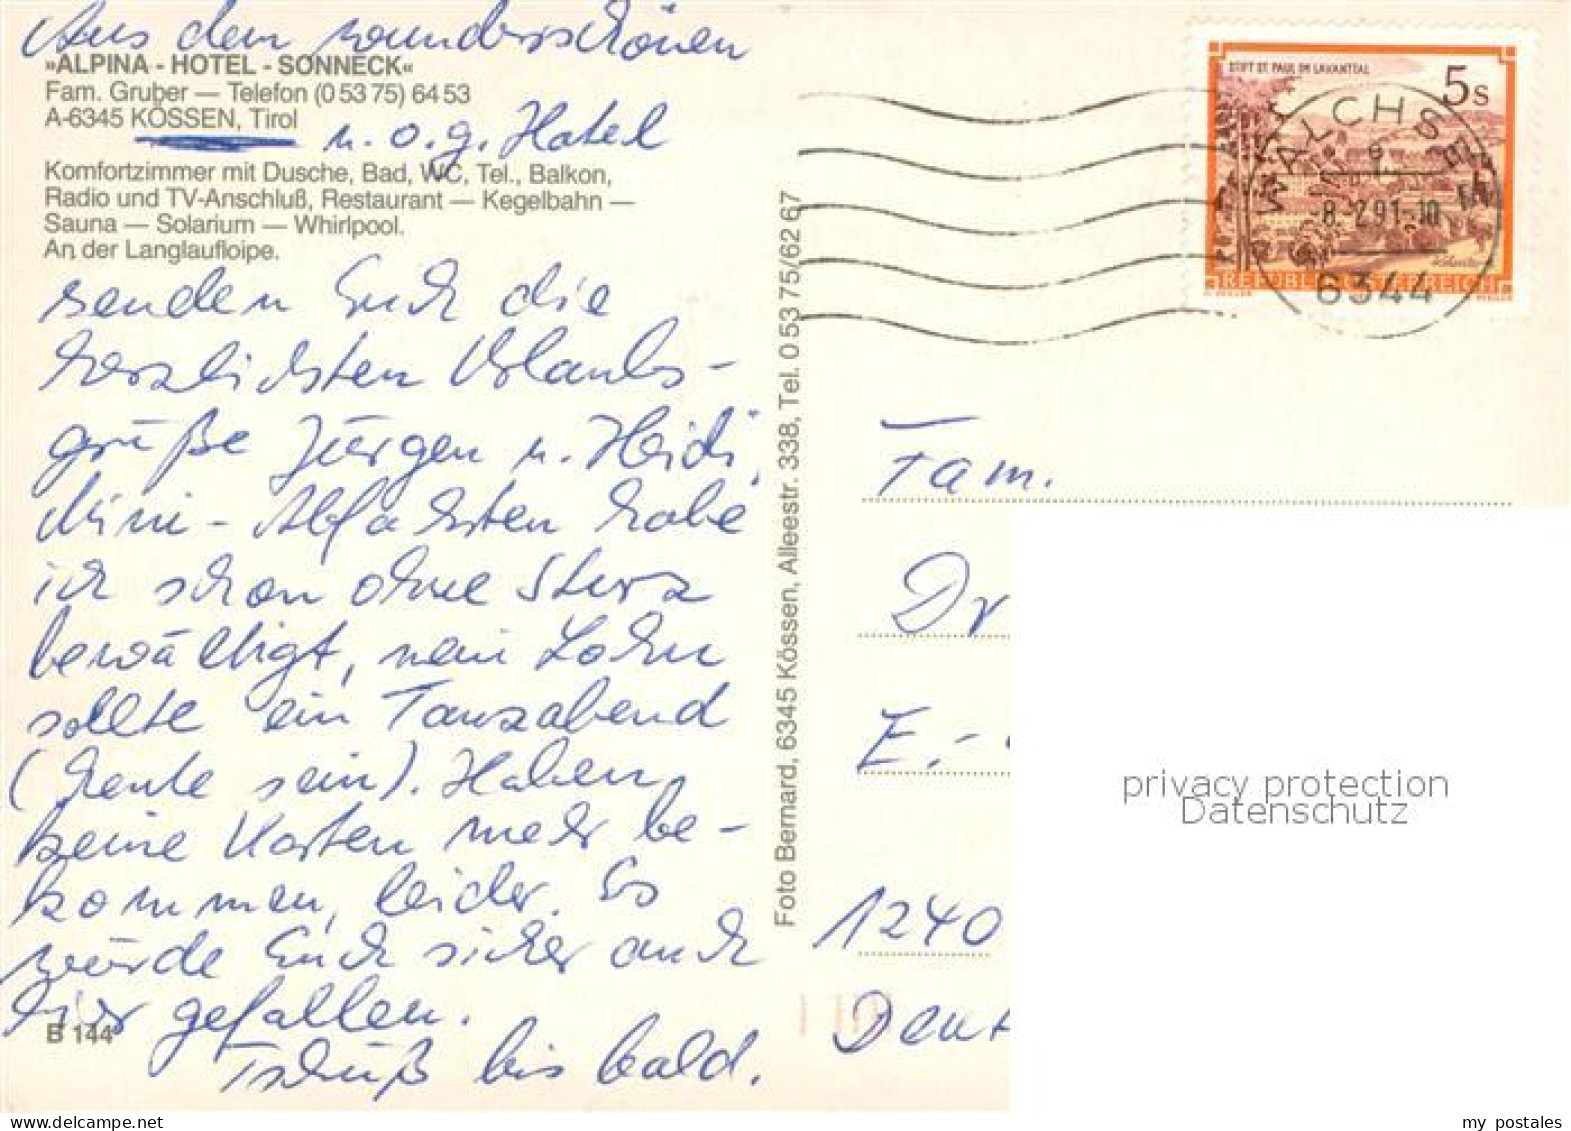 Aus dem wunderschönen
»ALPINA - HOTEL - SONNECK«
Fam. Gruber — Telefon (0 53 75) 64 53
A-6345 KÖSSEN, Tirol
u. o. g. Hotel
Komfortzimmer mit Dusche, Bad, WC, Tel., Balkon,
Radio und TV-Anschluß, Restaurant — Kegelbahn —
Sauna — Solarium — Whirlpool.
An der Langlaufloipe.
senden Euch die
herzlichsten Urlaubs-
grüße Jürgen u. Heidi,
Mini - Abfahrten habe
ich schon ohne Sturz
bewältigt, mein Lohn
sollte ein Tanzabend
(heute sein). Haben
keine Karten mehr be-
kommen, leider. Es
würde Euch sicher auch
hier gefallen.
Tschüß bis bald.
B 144
Foto Bernard, 6345 Kössen, Alleestr. 338, Tel. 0 53 75/62 67
STIFT ST. PAUL IM LAVANTTAL
5s
REPUBLIK ÖSTERREICH
WALCHSEE
-8.-2.91-10
6344
Fam.
Dr
E.-
1240
Deut
privacy protection
Datenschutz
www.ansichtskartenversand.com
my postales